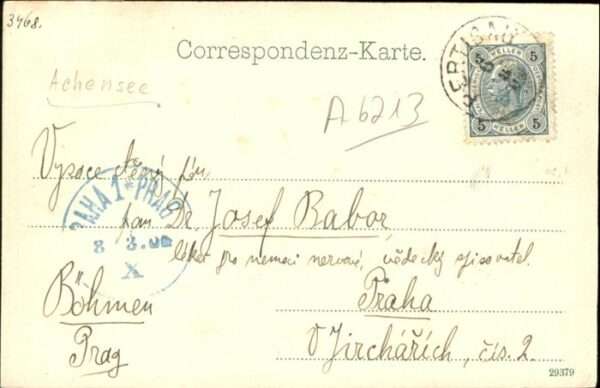 3468.
Correspondenz-Karte.
Achensee
A6213
PERTISAU
5 HELLER 5
5 HELLER 5
Vysoce ctěný pán,
PRAHA 1 * PRAG
8 3.00
X
pan Dr. Josef Babor,
lékař pro nemoci nervové, vědecký spisovatel
Böhmen
Praha
Prag
V Jirchářích, čís. 2.
29379